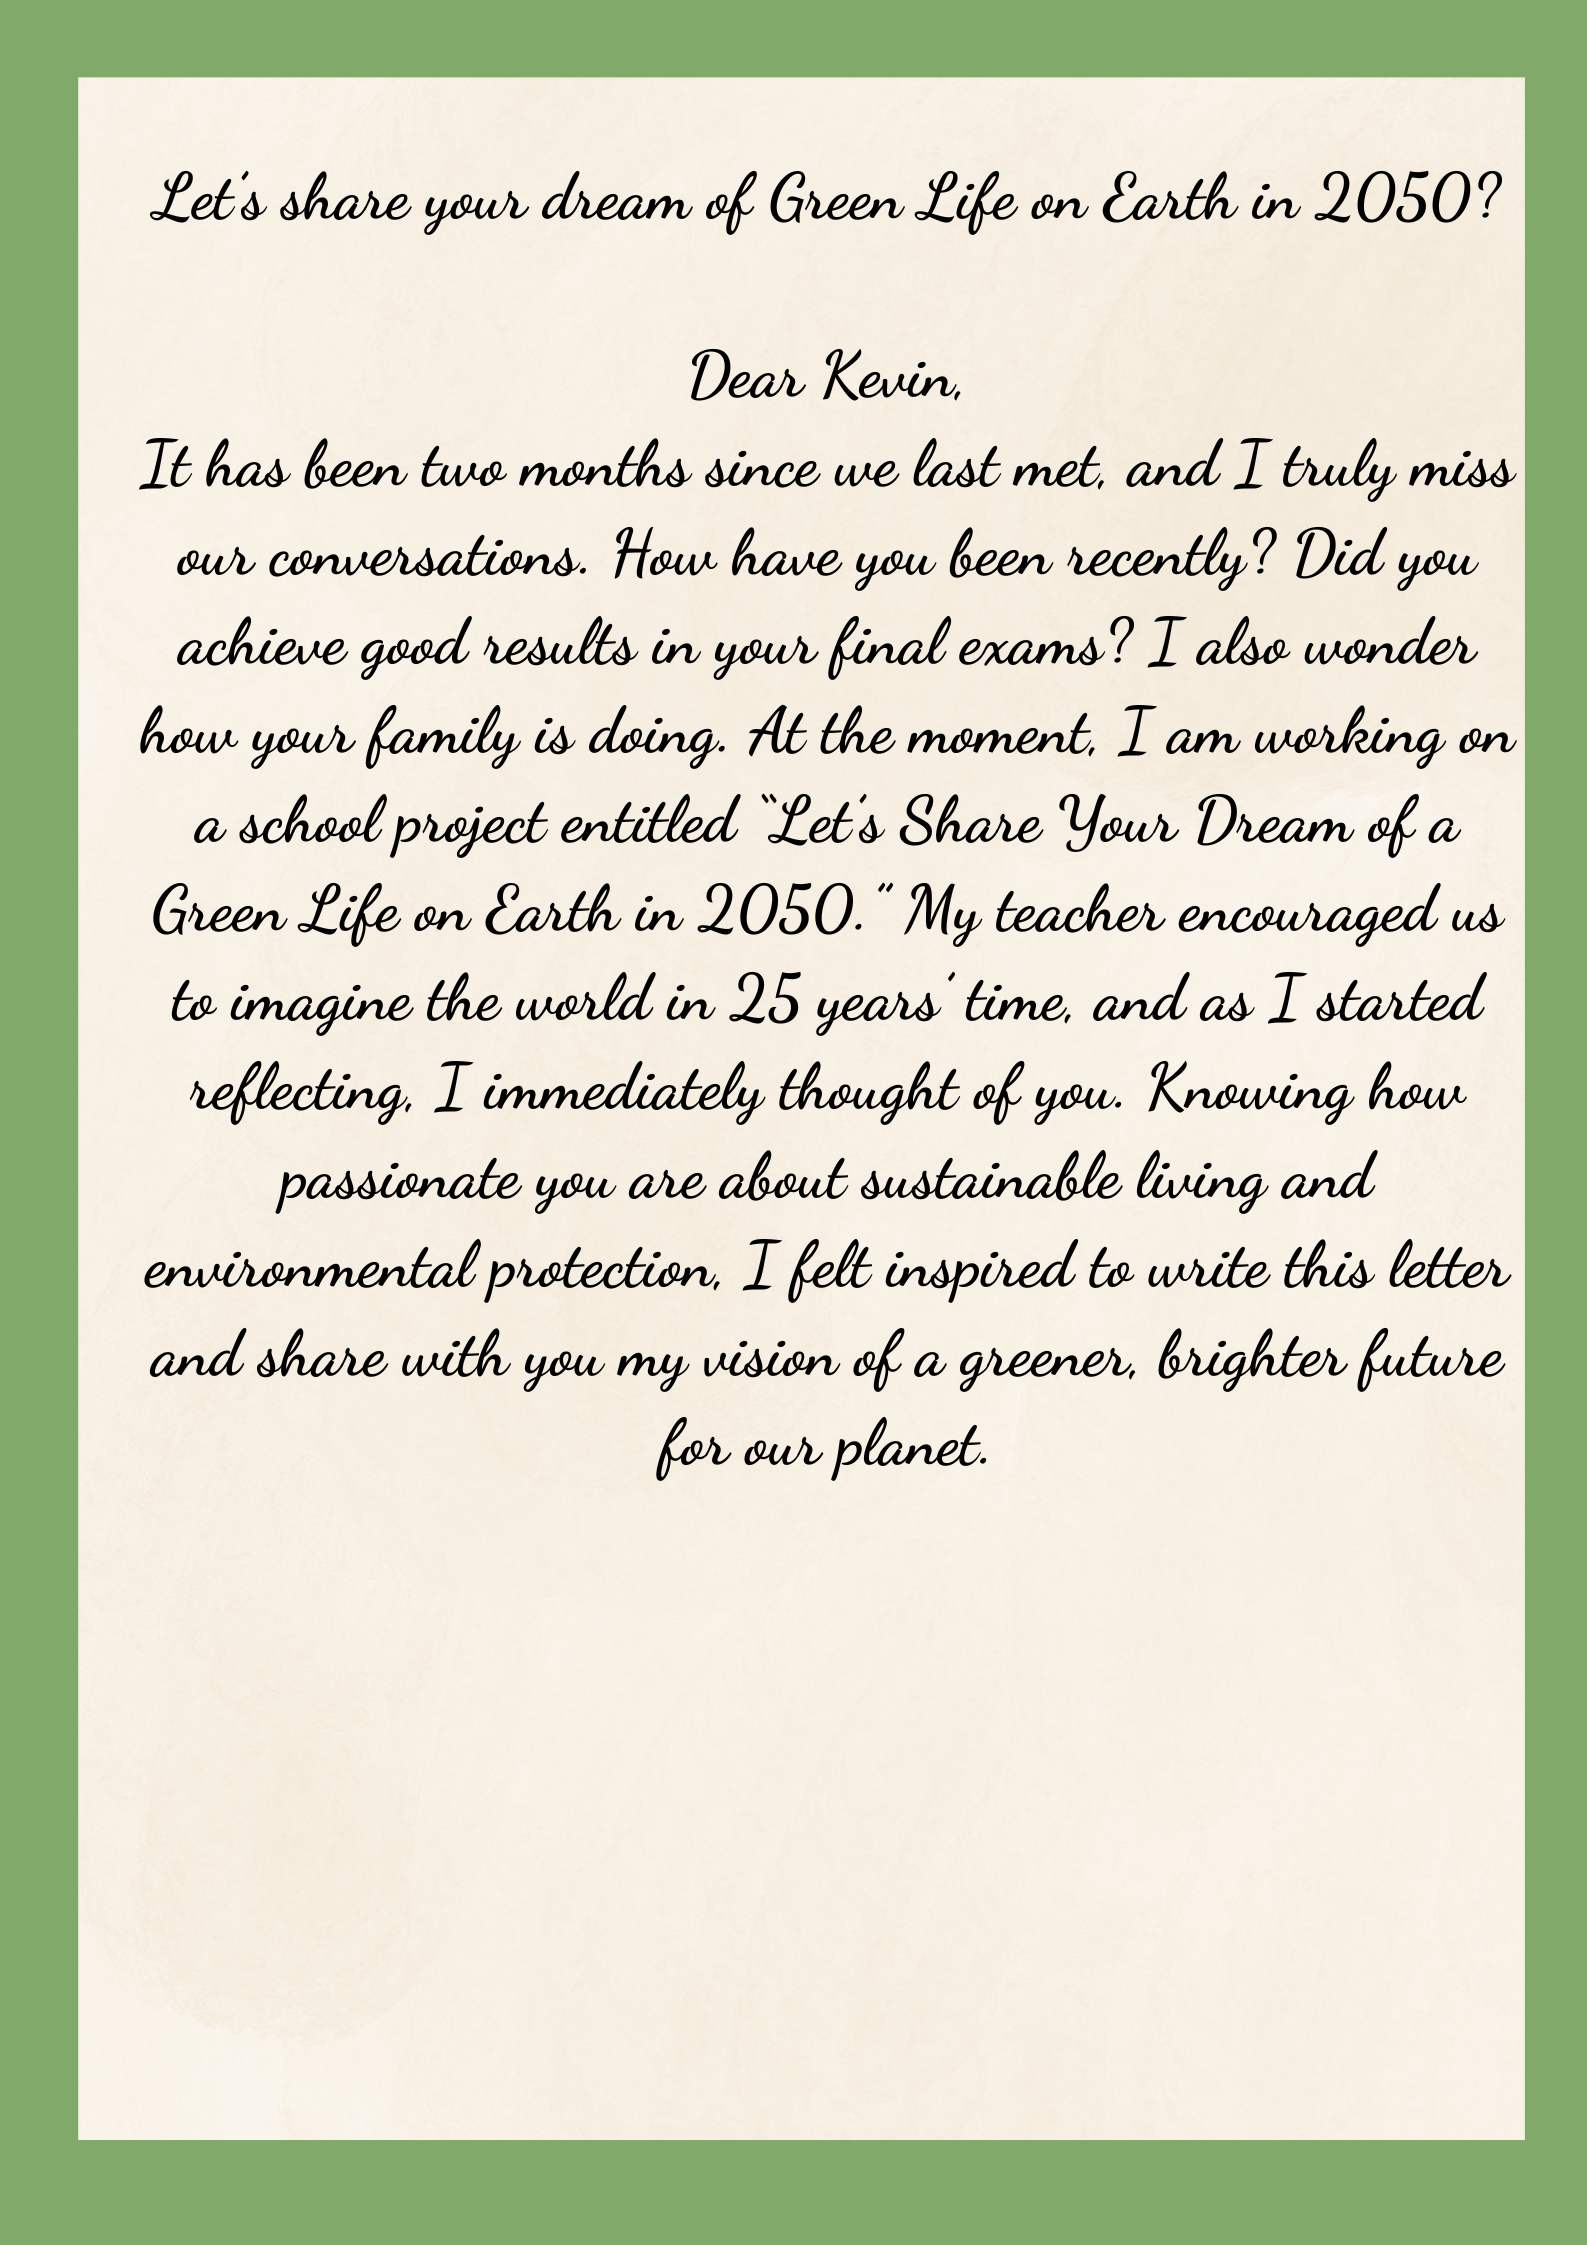 Let's share your dream of Green Life on Earth in 2050?
Dear Kevin,
It has been two months since we last met, and I truly miss
our conversations. How have you been recently? Did you
achieve good results in your final exams? I also wonder
how your family is doing. At the moment, I am working on
a school project entitled “Let's Share Your Dream of a
Green Life on Earth in 2050.” My teacher encouraged us
to imagine the world in 25 years’ time, and as I started
reflecting, I immediately thought of you. Knowing how
passionate you are about sustainable living and
environmental protection, I felt inspired to write this letter
and share with you my vision of a greener, brighter future
for our planet.